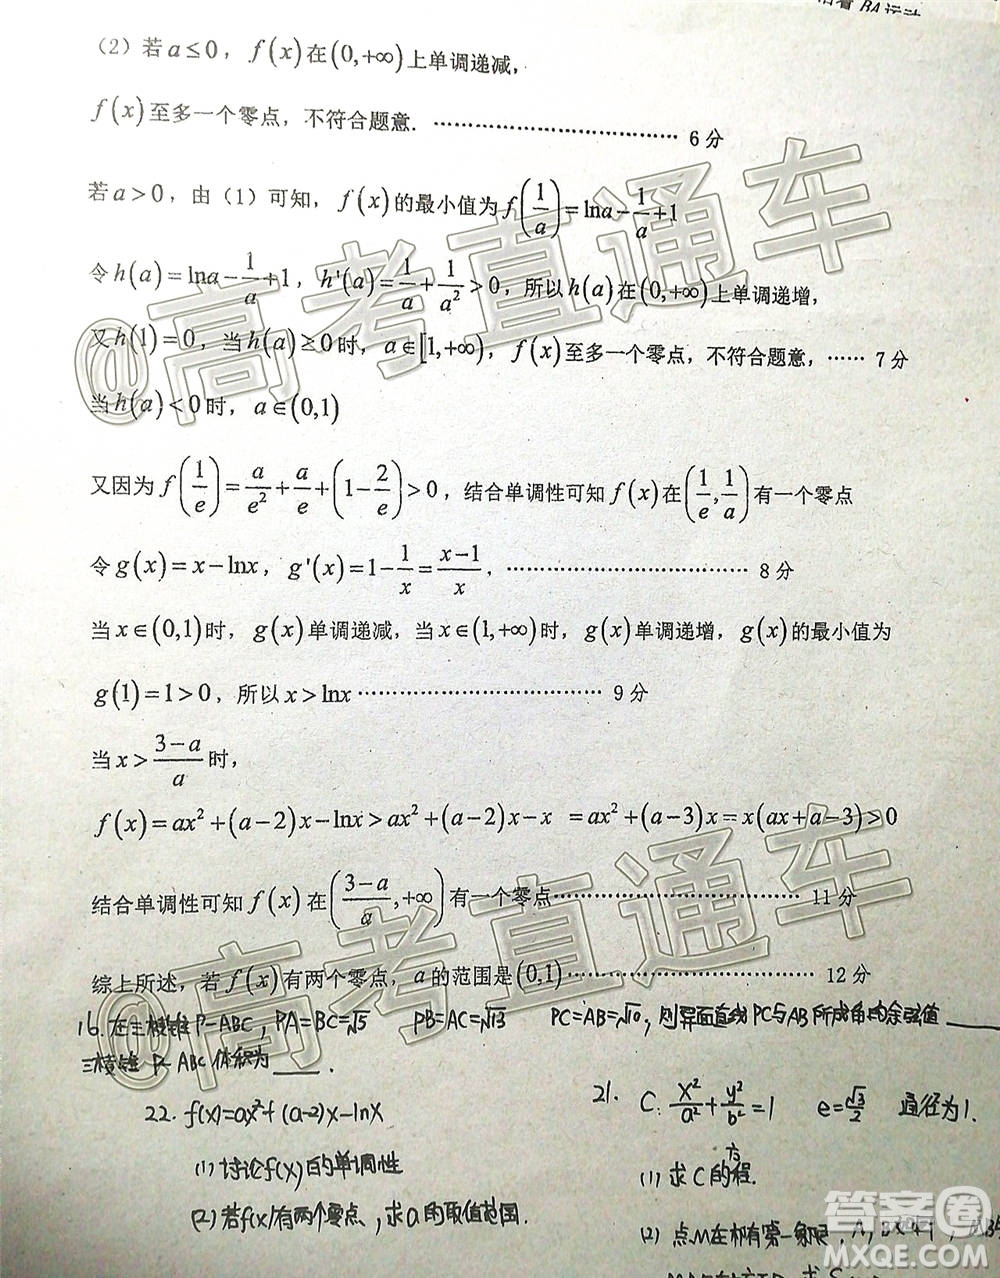 BA运动
（2）若a≤0，f(x)在(0,+∞)上单调递减，
f(x)至多一个零点，不符合题意. ………………………………… 6分
若a>0，由（1）可知，f(x)的最小值为f(1/a)=lna-1/a+1
令h(a)=lna-1/a+1，h'(a)=1/a+1/a²>0，所以h(a)在(0,+∞)上单调递增，
又h(1)=0，当h(a)≥0时，a∈[1,+∞)，f(x)至多一个零点，不符合题意，…… 7分
当h(a)<0时，a∈(0,1)
又因为f(1/e)=a/e²+a/e+(1-2/e)>0，结合单调性可知f(x)在(1/e,1/a)有一个零点
令g(x)=x-lnx，g'(x)=1-1/x=(x-1)/x，………………………………… 8分
当x∈(0,1)时，g(x)单调递减，当x∈(1,+∞)时，g(x)单调递增，g(x)的最小值为
g(1)=1>0，所以x>lnx ………………………………… 9分
当x>(3-a)/a时，
f(x)=ax²+(a-2)x-lnx>ax²+(a-2)x-x =ax²+(a-3)x=x(ax+a-3)>0
结合单调性可知f(x)在((3-a)/a,+∞)有一个零点………………………………… 11分
综上所述，若f(x)有两个零点，a的范围是(0,1)………………………………… 12分
16.在三棱锥P-ABC，PA=BC=√5 PB=AC=√13 PC=AB=√10，则异面直线PC与AB所成角的余弦值____
三棱锥P-ABC体积为____.
22. f(x)=ax²+(a-2)x-lnx
(1)讨论f(x)的单调性
(2)若f(x)有两个零点，求a的取值范围.
21. C: x²/a²+y²/b²=1 e=√3/2 通径为1.
(1)求C的方程.
(2)点M在椭有第一象限，A,B
@高考直通车
@高考直通车
答案圈
MXQE.COM